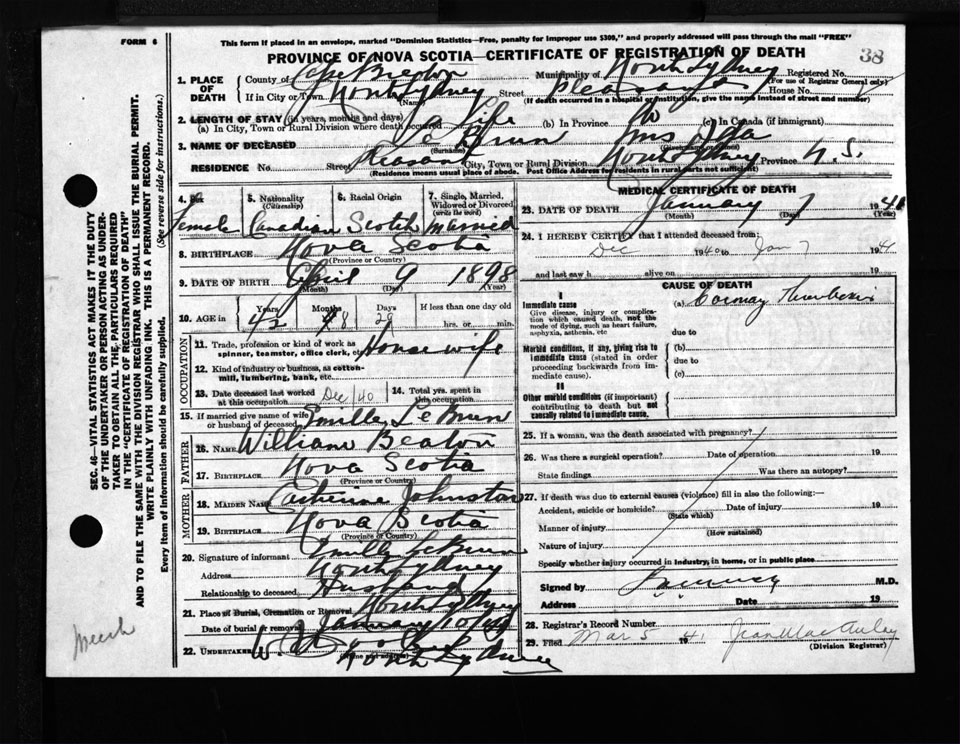 FORM 6
This form if placed in an envelope, marked "Dominion Statistics—Free, penalty for improper use $300," and properly addressed will pass through the mail "FREE"
PROVINCE OF NOVA SCOTIA—CERTIFICATE OF REGISTRATION OF DEATH
38
1. PLACE OF DEATH
County of Cape Breton Municipality of North Sydney Registered No.
(For use of Registrar General only)
If in City or Town North Sydney Street Pleasant House No.
(Name) (If death occurred in a hospital or institution, give the name instead of street and number)
2. LENGTH OF STAY (in years, months and days)
(a) In City, Town or Rural Division where death occurred Life (b) In Province (c) In Canada (if immigrant)
3. NAME OF DECEASED Le Brun Mrs Ida
(Surname)
RESIDENCE No. Street Pleasant City, Town or Rural Division North Sydney Province N.S.
(Residence means usual place of abode. Post Office Address for residents in rural parts not sufficient)
4. Sex Female
5. Nationality (Citizenship) Canadian
6. Racial Origin Scotch
7. Single, Married, Widowed or Divorced (write the word) Married
8. BIRTHPLACE Nova Scotia
(Province or Country)
9. DATE OF BIRTH April 9 1898
(Month) (Day) (Year)
10. AGE in Years 42 Months 8 Days 29 If less than one day old hrs. or min.
OCCUPATION
11. Trade, profession or kind of work as spinner, teamster, office clerk, etc. House wife
12. Kind of industry or business, as cotton-mill, lumbering, bank, etc.
13. Date deceased last worked at this occupation Dec/40 14. Total yrs. spent in this occupation
15. If married give name of wife or husband of deceased LeBrun
FATHER
16. NAME William Beaton
17. BIRTHPLACE Nova Scotia
(Province or Country)
MOTHER
18. MAIDEN NAME Catherine Johnston
19. BIRTHPLACE Nova Scotia
(Province or Country)
20. Signature of informant LeBrun
Address North Sydney
Relationship to deceased Husband
21. Place of Burial, Cremation or Removal North Sydney
Date of burial or removal January 10/
22. UNDERTAKER North Sydney
MEDICAL CERTIFICATE OF DEATH
23. DATE OF DEATH January 7 1941
(Month) (Day) (Year)
24. I HEREBY CERTIFY that I attended deceased from:
Dec 1940 to Jan 7 1941
and last saw h alive on 19
CAUSE OF DEATH
I
Immediate cause
Give disease, injury or complication which caused death, not the mode of dying, such as heart failure, asphyxia, asthenia, etc
(a)
due to
Morbid conditions, if any, giving rise to immediate cause (stated in order proceeding backwards from immediate cause).
(b)
due to
(c)
II
Other morbid conditions (if important) contributing to death but not causally related to immediate cause
25. If a woman, was the death associated with pregnancy?
26. Was there a surgical operation? Date of operation 19
State findings Was there an autopsy?
27. If death was due to external causes (violence) fill in also the following:—
Accident, suicide or homicide? Date of injury 19
(State which)
Manner of injury
(How sustained)
Nature of injury
Specify whether injury occurred in industry, in home, or in public place
Signed by M.D.
Address Date 19
28. Registrar's Record Number
29. Filed Mar 5 1941 Jean MacAulay
(Division Registrar)
SEC. 46—VITAL STATISTICS ACT MAKES IT THE DUTY
OF THE UNDERTAKER OR PERSON ACTING AS UNDER-
TAKER TO OBTAIN ALL THE PARTICULARS REQUIRED
IN THE "CERTIFICATE OF REGISTRATION OF DEATH"
AND TO FILE THE SAME WITH THE DIVISION REGISTRAR WHO SHALL ISSUE THE BURIAL PERMIT.
WRITE PLAINLY WITH UNFADING INK. THIS IS A PERMANENT RECORD.
Every item of information should be carefully supplied. (See reverse side for instructions.)